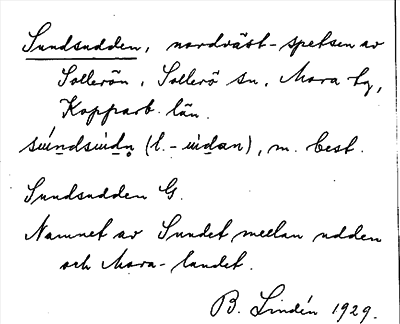 Sundsudden, nordväst-spetsen av
Sollerön, Sollerö sn, Mora tg,
Kopparb. län.
su̇́ndsu̇dn̥ (l. -u̇dan), m. best.
Sundsudden G.
Namnet av Sundet mellan udden
och Mora-landet.
B. Lindén 1929.